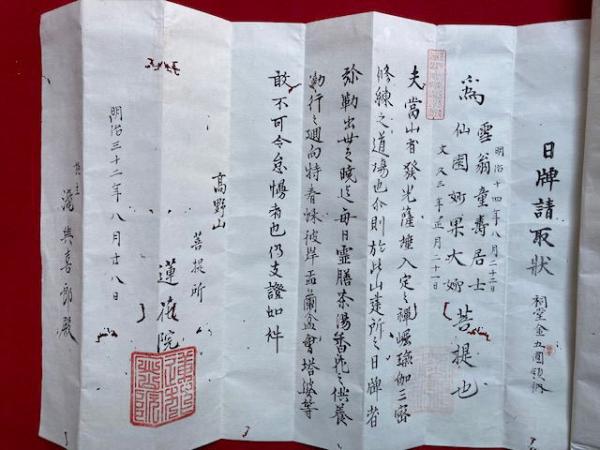 日牌請取状
祠堂金五圓領納
明治十四年八月二十三日
雪翁童壽居士
為
仙園妙果大姉
菩提也
文久三年正月二十一日
夫當山者發光薩埵入定之禅崛瑜伽三密
修練之道場也今則於此山建所之日牌者
弥勒出世之暁迄毎日霊膳茶湯香花之供養
勤行之廻向特春秋彼岸盂蘭盆會塔婆等
敢不可令怠慢者也仍支證如件
高野山
菩提所
蓮花院
明治三十二年八月廿八日
施主
瀧與喜郎殿